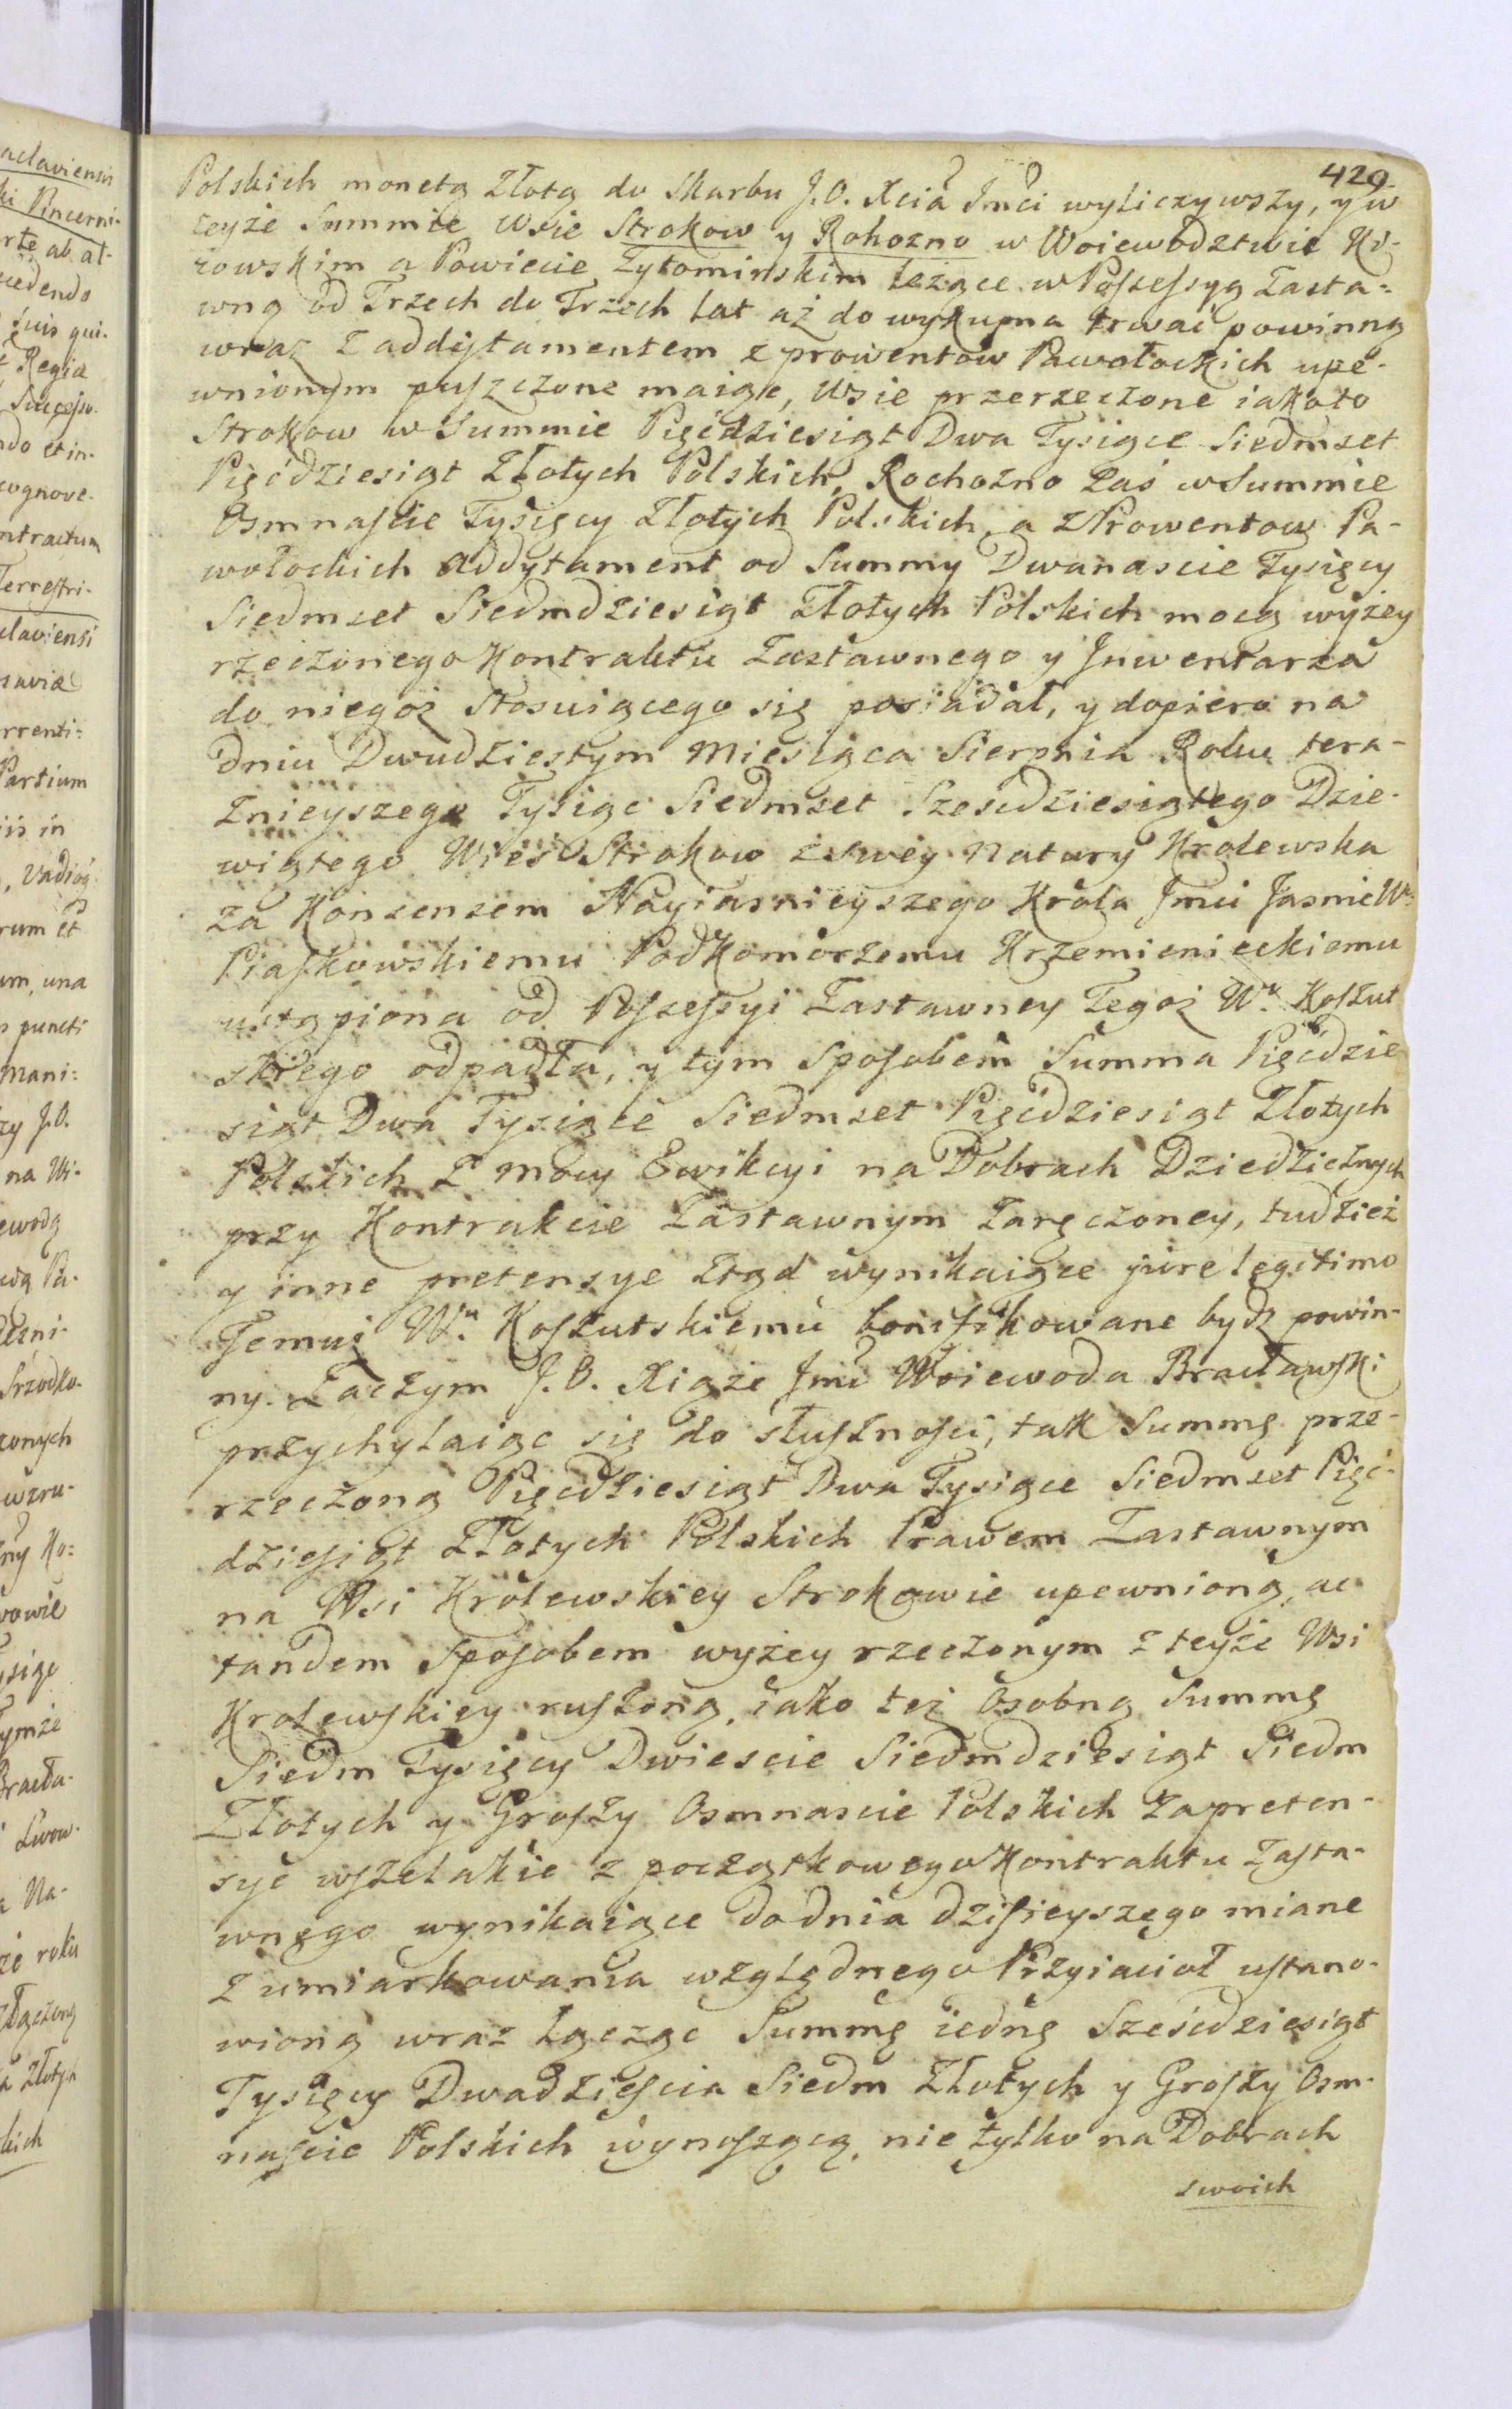 429.
Polskich monetą Złotą do Skarbu J. O. Xcia Jmci wyliczywszy, y w
teyże Summie Wsie Strokow y Rohozno w Woiewodztwie Ki-
iowskim a Powiecie Zytomirskim leżące w Possessyą Zasta-
wną od Trzech do Trzech lat aż do wykupna trwać powinną
wraz z addytamentem z prowentow Pawołockich upe-
wnionym puszczone maiąc, Wsie przerzeczone iakoto
Strokow w Summie Pięćdziesiąt Dwa Tysiące Siedmset
Pięćdziesiąt Złotych Polskich, Rochozno zaś w Summie
Osmnaście Tysięcy Złotych Polskich, a z Prowentow Pa-
wołockich Addytament od Summy Dwanaście Tysięcy
Siedmset Siedmdziesiąt Złotych Polskich mocą wyżey
rzeczonego Kontraktu Zastawnego y Jnwentarza
do niegoż stosuiącego się posiadał, y dopiero na
dniu Dwudziestym Miesiąca Sierpnia Roku tera-
znieyszego Tysiąc Siedmset Sześćdziesiątego Dzie-
wiątego Wieś Strokow z swey natury Krolewska
za Konsensem Nayiasnieyszego Krola Jmci Jasnie W:
Piaskowskiemu Podkomorzemu Krzemienieckiemu
ustąpiona od Possessyi Zastawney Tegoż W. Koszut
skiego odpadła, y tym sposobem Summa Pięćdzie
siąt Dwa Tysiące Siedmset Pięćdziesiąt Złotych
Polskich z mocy Ewikcyi na Dobrach Dziedzicznych
przy Kontrakcie Zastawnym zaręczoney, tudzież
y inne pretensye ztąd wynikaiące jure legitimo
Temuż W. Koszutskiemu bonifikowane bydź powin-
ny. Zaczym J. O. Xiąże Jmć Woiewoda Bracławski
przychylaiąc się do słuszności, tak Summę prze-
rzeczoną Pięćdziesiąt Dwa Tysiące Siedmset Pięć-
dziesiąt Złotych Polskich Prawem Zastawnym
na Wsi Krolewskiey Strokowie upewnioną, ac
tandem sposobem wyżey rzeczonym z teyże Wsi
Krolewskiey ruszoną, iako też osobną Summę
Siedm Tysięcy Dwieście Siedmdziesiąt Siedm
Złotych y Groszy Osmnascie Polskich za preten-
sye wszelakie z początkowego Kontraktu Zasta-
wnego wynikaiące do dnia dzisieyszego miane
z umiarkowania względnego Przyiacioł ustano-
wioną wraz łącząc Summę iednę Sześćdziesiąt
Tysięcy Dwadzieścia Siedm Złotych y Groszy Osm-
naście Polskich wynoszącą, nie tylko na Dobrach
swoich